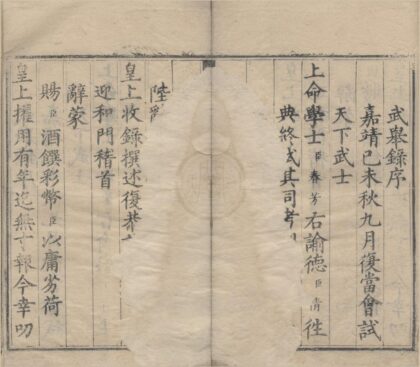 武舉錄序
嘉靖己未秋九月復當會試
天下武士
上命學士臣春芳右諭德臣
典終其司
陸
皇上收錄撰述復
迎和門稽首
辭蒙
賜臣酒饌彩幣臣以庸劣荷
皇上擢用有年迄無寸報今幸叨